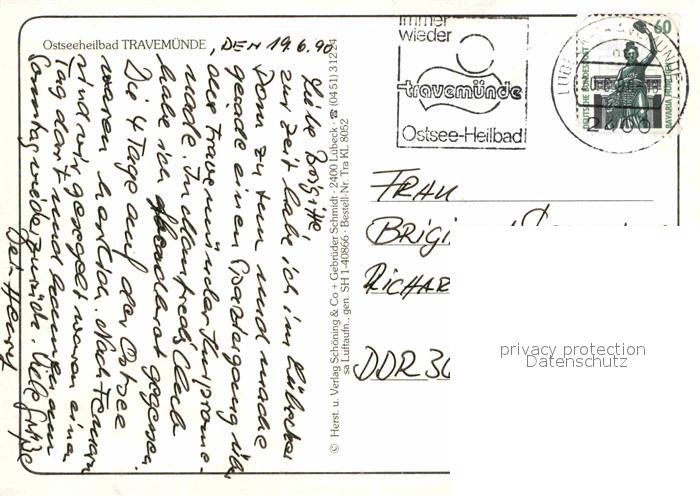 Ostseeheilbad TRAVEMÜNDE, DEN 19.6.90
Liebe Brigitte
zur Zeit habe ich im Lübecker
Dom zu tun und mache
gerade einen Spaziergang über
die Travemünder Kurprome-
nade. In Manfreds Club
habe ich Abendbrot gegessen.
Die 4 Tage auf der Ostsee
waren herrlich. Nach
sind wir gesegelt waren einen
Tag dort und kommen am
Sonntag wieder zurück. Viele Grüße
Dein Henry
© Herst. u. Verlag Schöning & Co + Gebrüder Schmidt · 2400 Lübeck · ☎ (0451) 31224
sa Luftaufn., gen. SH 1-40866 · Bestell-Nr. Tra KL 8052
immer
wieder
travemünde
Ostsee-Heilbad
LÜBECK-TRAVEMÜNDE
2400
60
DEUTSCHE BUNDESPOST
BAVARIA MÜNCHEN
FRAU
BRIGI
RICHAR
DDR 30
privacy protection
Datenschutz